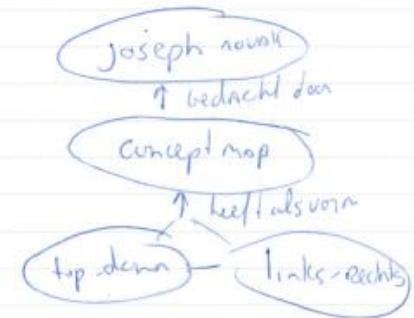 joseph novak
bedacht door
concept map
heeft als vorm
top-down
links-rechts